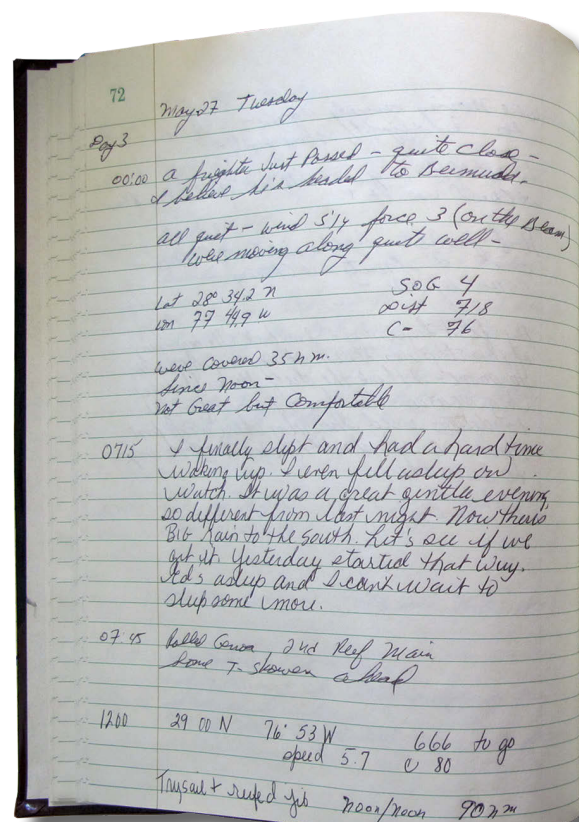 72
May 27 Tuesday
Day 3
00:00 a frighter Just Passed - quite close -
I believe his headed to Bermuda.
all quiet - wind S'ly force 3 (on the Beam)
were moving along quite well -
Lat 28° 34.2 N SOG 4
Lon 77 44.9 W Dist 718
C - 76
weve covered 35 n m.
Since Noon -
Not Great but Comfortable
0715 I finally slept and had a hard time
waking up. I even fell asleep on
watch. It was a great gentle evening,
so different from last night. Now theres
Big rain to the south. Let's see if we
get it. Yesterday started that way.
Ed's asleep and I can't wait to
sleep some more.
07:45 Rolled Genoa 2nd Reef Main
Some T- Showers ahead
1200 29 00 N 76° 53 W 666 to go
speed 5.7 C 80
Trysail + reefed jib noon/noon 90 n m